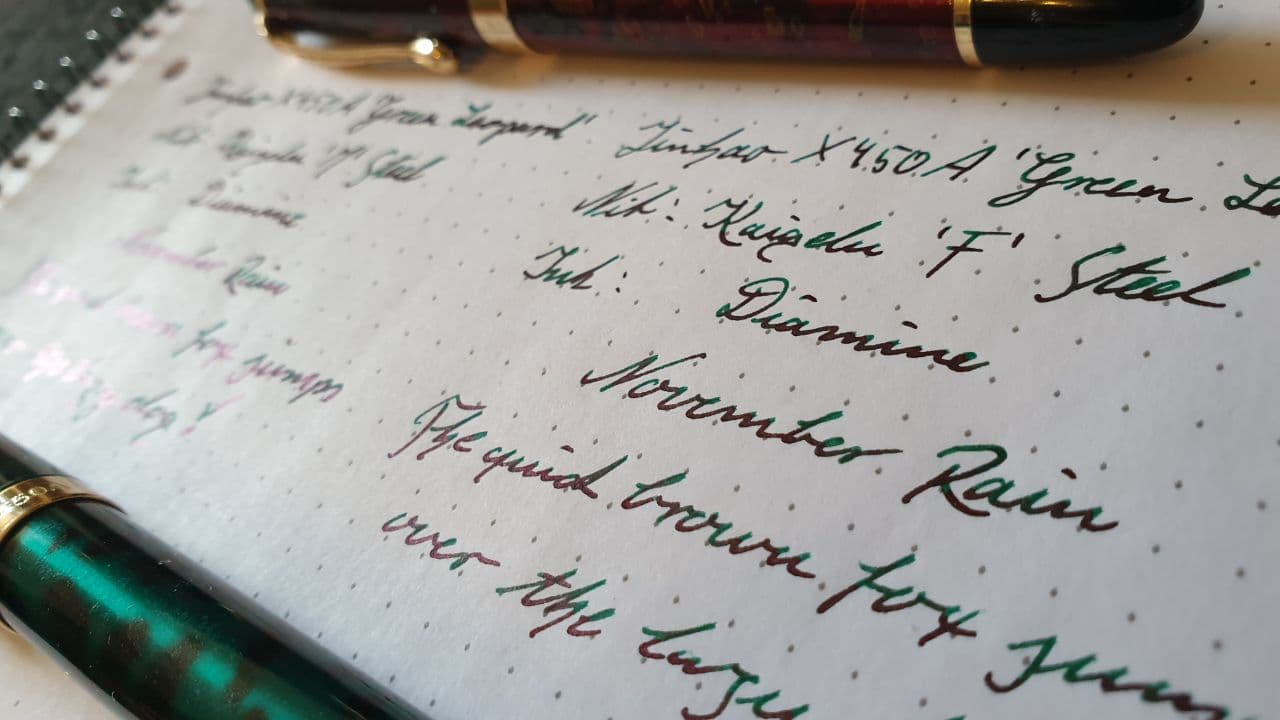 Jinhao X450A "Green Leopard"
Nib: Kaigelu 'M' Steel
Ink: Diamine
November Rain
fox jumps
dog!
Jinhao X450A 'Green Le
Nib: Kaigelu 'F' Steel
Ink: Diamine
November Rain
The quick brown fox jum
over the lazy